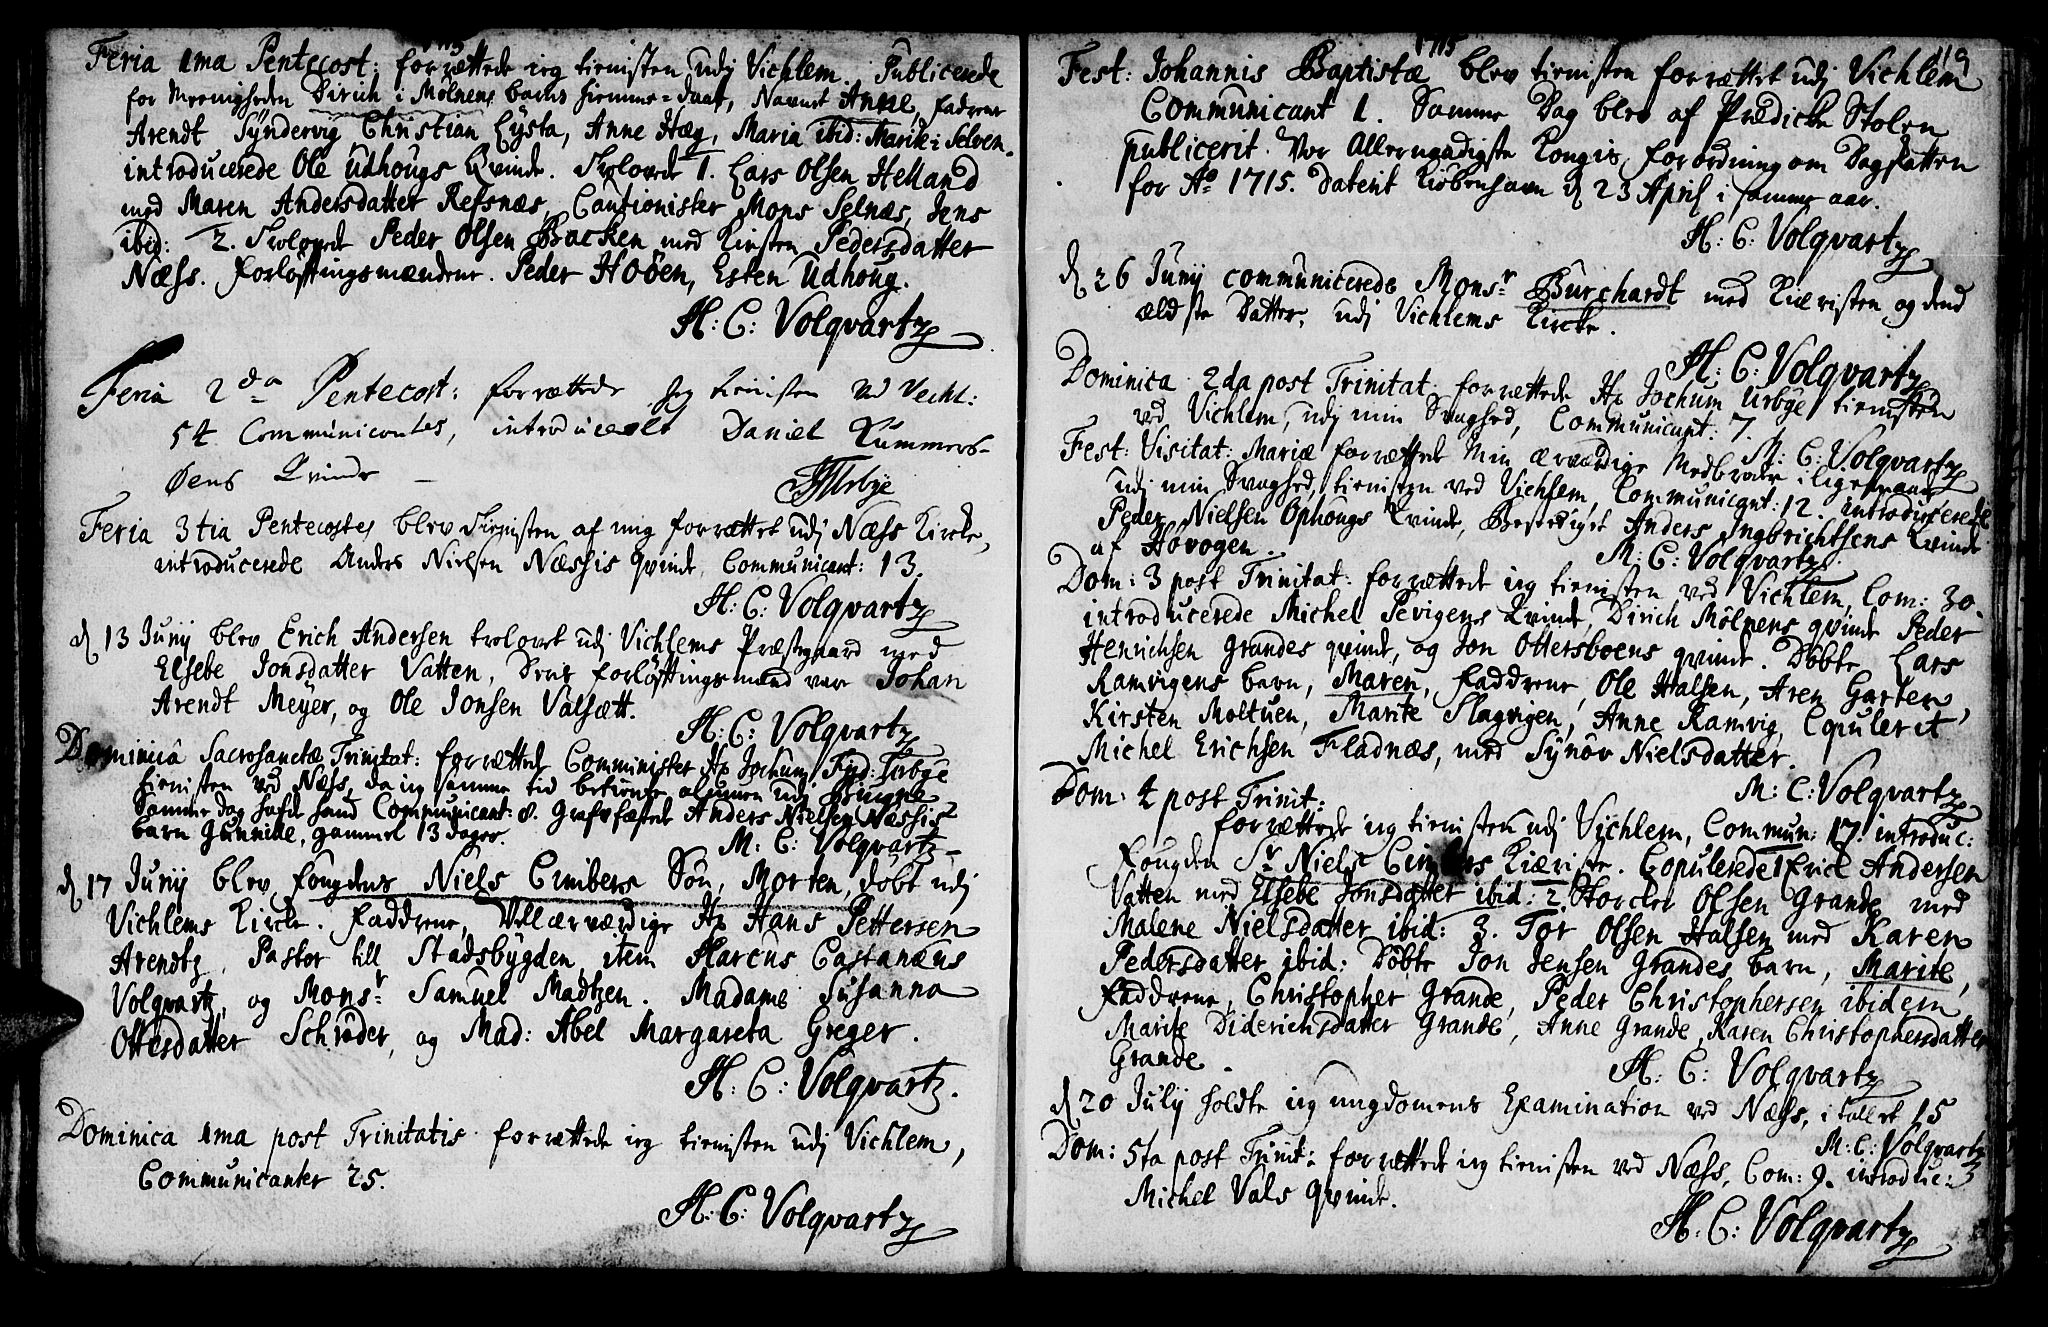 1715
Feria 1ma Pentecost: forrættede ieg tienisten udj Vichlem. Publicerede
for Meenigheden Dirich i Mølnens barns hiemme-daab, Navnet Anne, fadrene
Arendt Syndervig Christian Lysta, Anne Hæg, Maria ibid: Marit: Selven.
introducerede Ole Udhougs Kvinde. Trolovede 1. Lars Olsen Helland
med Maren Andersdatter Refsnæs, Cautionister Mons Selnæs, Jens
ibid: 2. Trolovede Peder Olsen Backen med Kirsten Pedersdatter
Næss. Forløftingsmændene. Peder Hoøen, Esten Udhoug.
H: C: Volqvartz
Feria 2da Pentecost: forrættede Jeg tienisten ved Vechl:
54 Communicantes, introducerede Daniel Kummers-
Øens Kvinde
Urbye
Feria 3tia Pentecostes blev Tienisten af mig forrættet udj Næss Kircke,
introducerede Anders Nielsen Næssis qvinde, Communicant: 13.
H: C: Volqvartz
d 13 Junij blev Erich Andersen trolovet udj Vichlems Præstegaard med
Elsebe Jonsdatter Vatten, Deres forløftingsmænd var Johan
Arendt Meyer, og Ole Jonsen Valsætt.
H: C: Volqvartz
Dominica Sacrosanctæ Trinitat: forrættede Comminister Hr Jochum Frid: Urbye
tienisten ved Næss, da ieg samme tid betiente almuen udj Biugne
Samme dag hafde hand Communicant: 8. Grafvfæstede Anders Nielsen Næssis
barn Gunnilde, gammel 13 dager.
M: C: Volqvartz
d 17 Junij blev fougdens Niels Cimbers Søn, Morten, døbt udj
Vichlems Kircke. Faddrene, Vellærværdige Hr Hans Pettersen
Arendtz, Pastor till Stadsbygden, item Marcus Castanæus
Volqvartz, og Monsr Samuel Madtzen. Madame Susanna
Ottesdatter Schrøder, og Mad: Abel Margareta Greger.
H: C: Volqvartz.
Dominica 1ma post Trinitatis forrættede ieg tienisten udj Vichlem,
Communicanter 25.
H: C: Volqvartz
1715
119
Fest: Johannis Baptistæ blev tienisten forrættet udj Vichlem
Communicant 1. Samme Dag blev af Prædicke Stolen
publicerit Vor Allernaadigste Kongis forordning om Dagskatten
for Ao 1715. Daterit Kiøbenhavn d 23 April i samme aar.
H: C: Volqvartz
d 26 Junij communicerede Monsr Burchardt med Kieristen og dend
ældste Datter, udj Vichlems Kircke.
H: C: Volqvartz
Dominica 2da post Trinitat: forrættede Hr Jochum Urbye tienisten
ved Vichlem, udj min Svaghed, Communicant: 7.
M: C: Volqvartz
Fest: Visitat: Mariæ forrættede Min ærværdige Medbroder
udj min Svaghed, tienisten ved Vichlem, Communicant: 12. introducerede
Peder Nielsen Ophougs Kvinde, Anders Ingbrichtsens Kvinde
af Hovogen.
M: C: Volqvartz
Dom: 3 post Trinitat: forrættede ieg tienisten ved Vichlem, Com: 30.
introducerede Michel Pevigens Kvinde, Dirich Mølnens qvinde Peder
Henrichsen Grandes qvinde, og Jon Ottersboens qvinde. Døbte Lars
Ramvigens barn, Maren, Faddrene, Ole Halsen, Aren Garten,
Kirsten Moltuen, Marite Slagvigen, Anne Ramvig, Copuleret
Michel Erichsen Fladnæs, med Synøv Nielsdatter.
M: C: Volqvartz
Dom: 4 post Trinit:
forrættede ieg tienisten udj Vichlem, Commun: 17. introduc:
Fougden Sr Niels Cimbers Kieriste. Copulerede 1 Erich Andersen
Vatten med Elsebe Jonsdatter ibid: 2. Storcker Olsen Grande med
Malene Nielsdatter ibid: 3. Tor Olsen Halsen med Karen
Pedersdatter ibid: Døbte Jon Jensen Grandes barn, Marite,
Faddrene, Christopher Grande, Peder Christophersen ibidem
Marite Diderichsdatter Grande, Anne Grande, Karen Christophersdatter
Grande.
H: C: Volqvartz
d 20 Julij holdte ieg ungdomens Examination ved Næss, i tallet 15
M: C: Volqvartz
Dom: 5ta post Trinit: forrættede ieg tienisten ved Næss, Com: 9. introduc:
Michel Vals qvinde.
H: C: Volqvartz